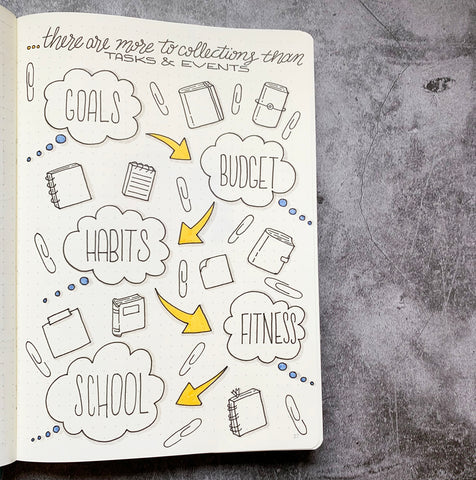 ...there are more to collections than
TASKS & EVENTS
GOALS
BUDGET
HABITS
FITNESS
SCHOOL